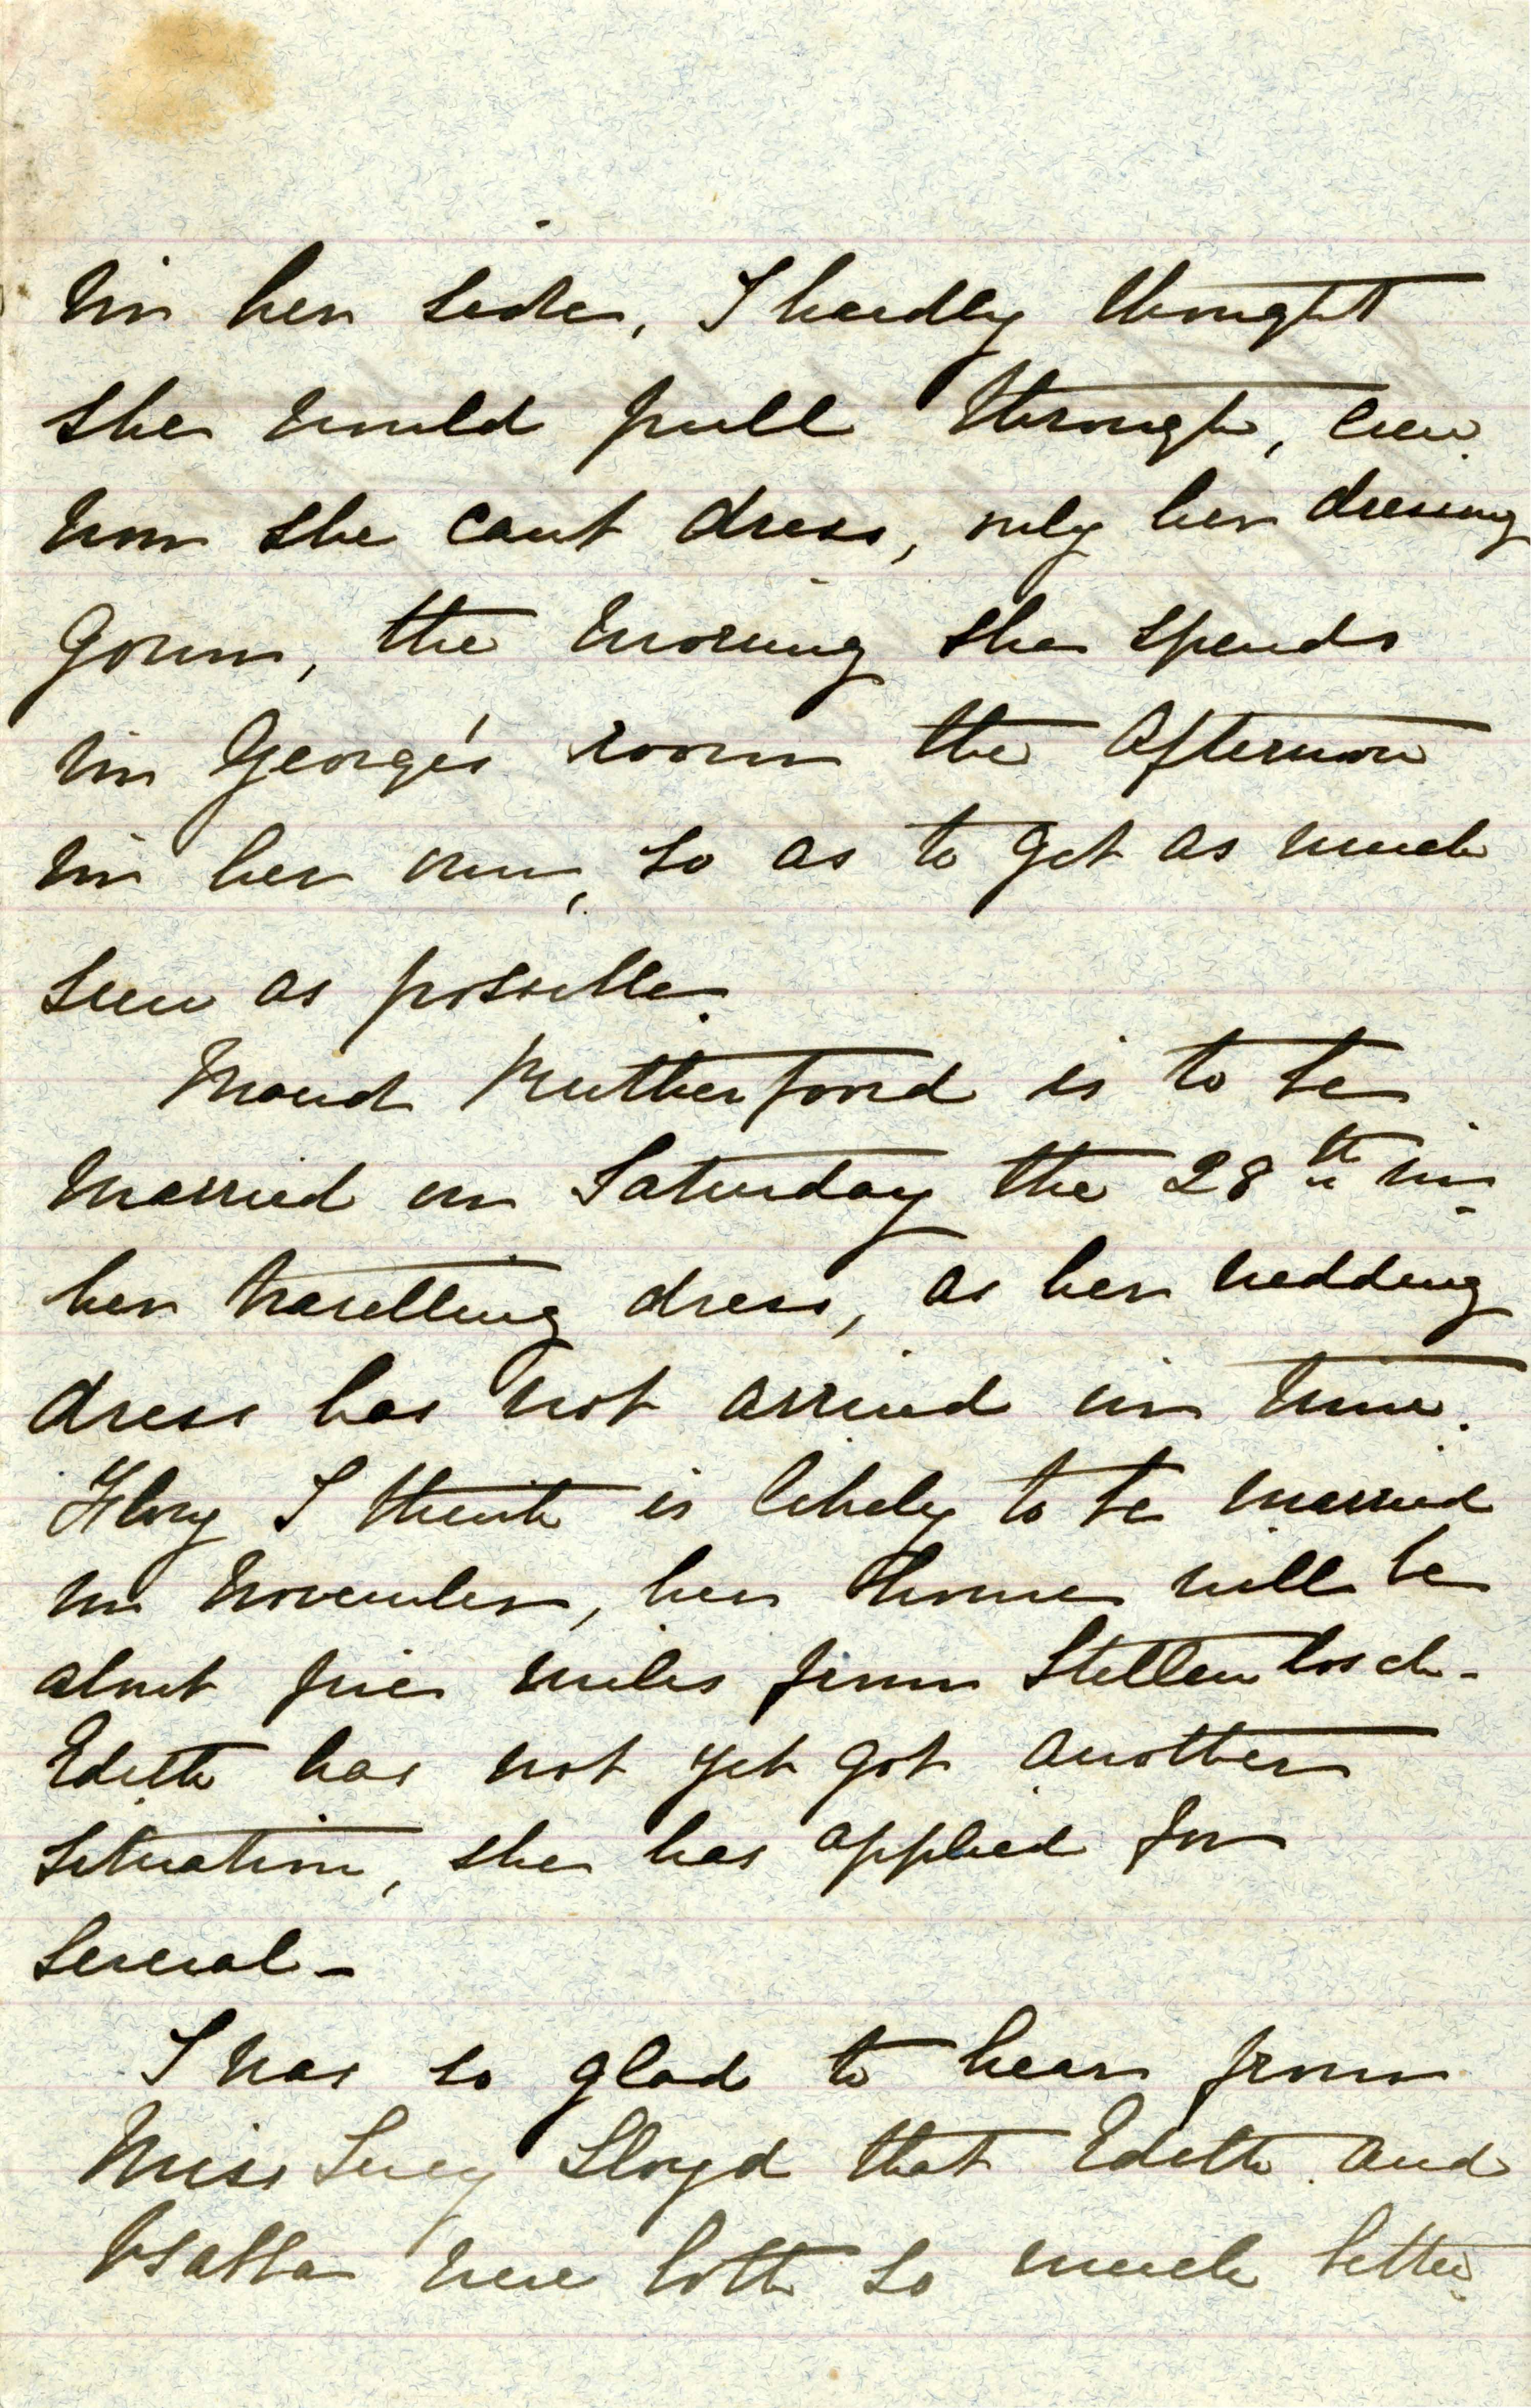 in her side, I hardly thought
she would pull through, even
now she cant dress, only her dressing
gown, the morning she spends
in George's room the afternoon
in her own, so as to get as much
sun as possible.
Maud Rutherfoord is to be
married on Saturday the 28th in
her travelling dress, as her wedding
dress has not arrived in time.
Flory I think is likely to be married
in November, her home will be
about five miles from Stellenbosch -
Edith has not yet got another
situation, she has applied for
several -
I was so glad to hear from
Miss Lucy Lloyd that Edith and
were both so much better